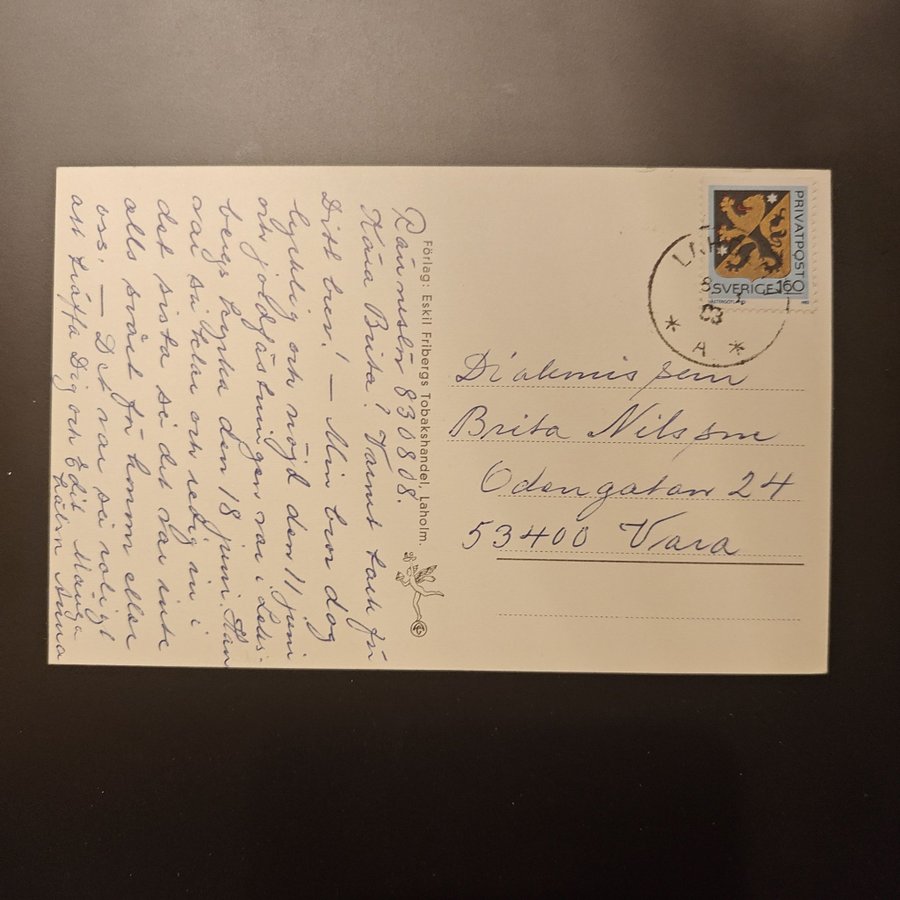 Ränneslöv 830808.
Kära Brita! Varmt tack för
Ditt brev! — Min bror dog
lycklig och nöjd den 11 juni
och jordfästningen var i Leds-
bergs kyrka den 18 juni. Han
var så klar och redig än i
det sista så det var inte
alls svårt för honom eller
oss. — Det var så roligt
att träffa Dig och Edit. Många
hälsn Anna
Förlag: Eskil Fribergs Tobakshandel, Laholm.
PRIVATPOST
SVERIGE 1.60
LAH
8
83
* A *
Diakonissen
Brita Nilsson
Odengatan 24
53400 Vara